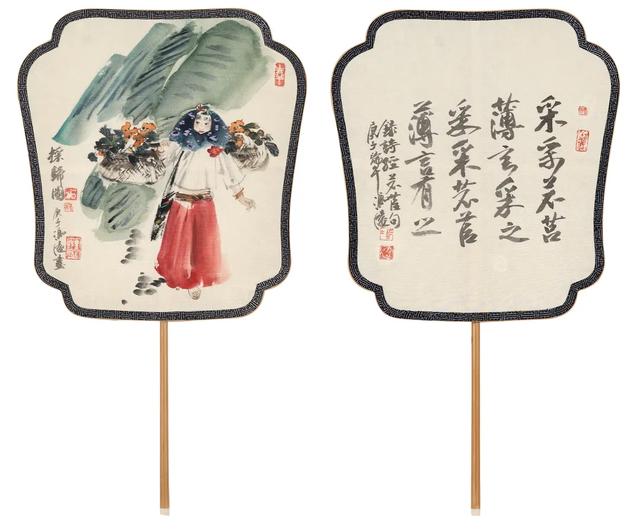 採歸圖
庚子
采采芣苢
薄言采之
采采芣苢
薄言有之
錄詩經芣苢句
庚子端午